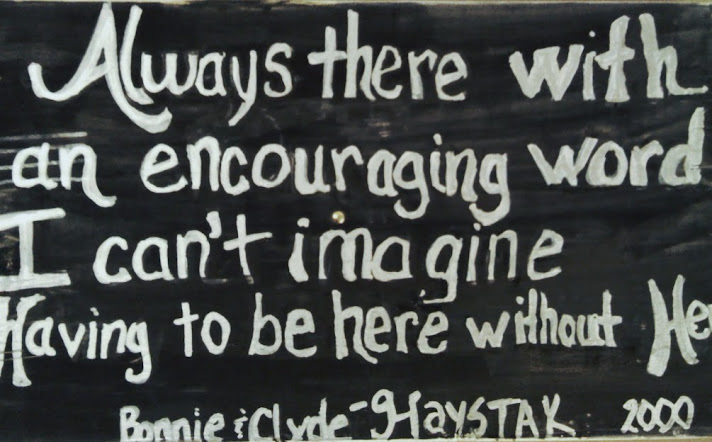 Always there with
an encouraging word
I can't imagine
Having to be here without Her
Bonnie & Clyde - HaysTAK 2000